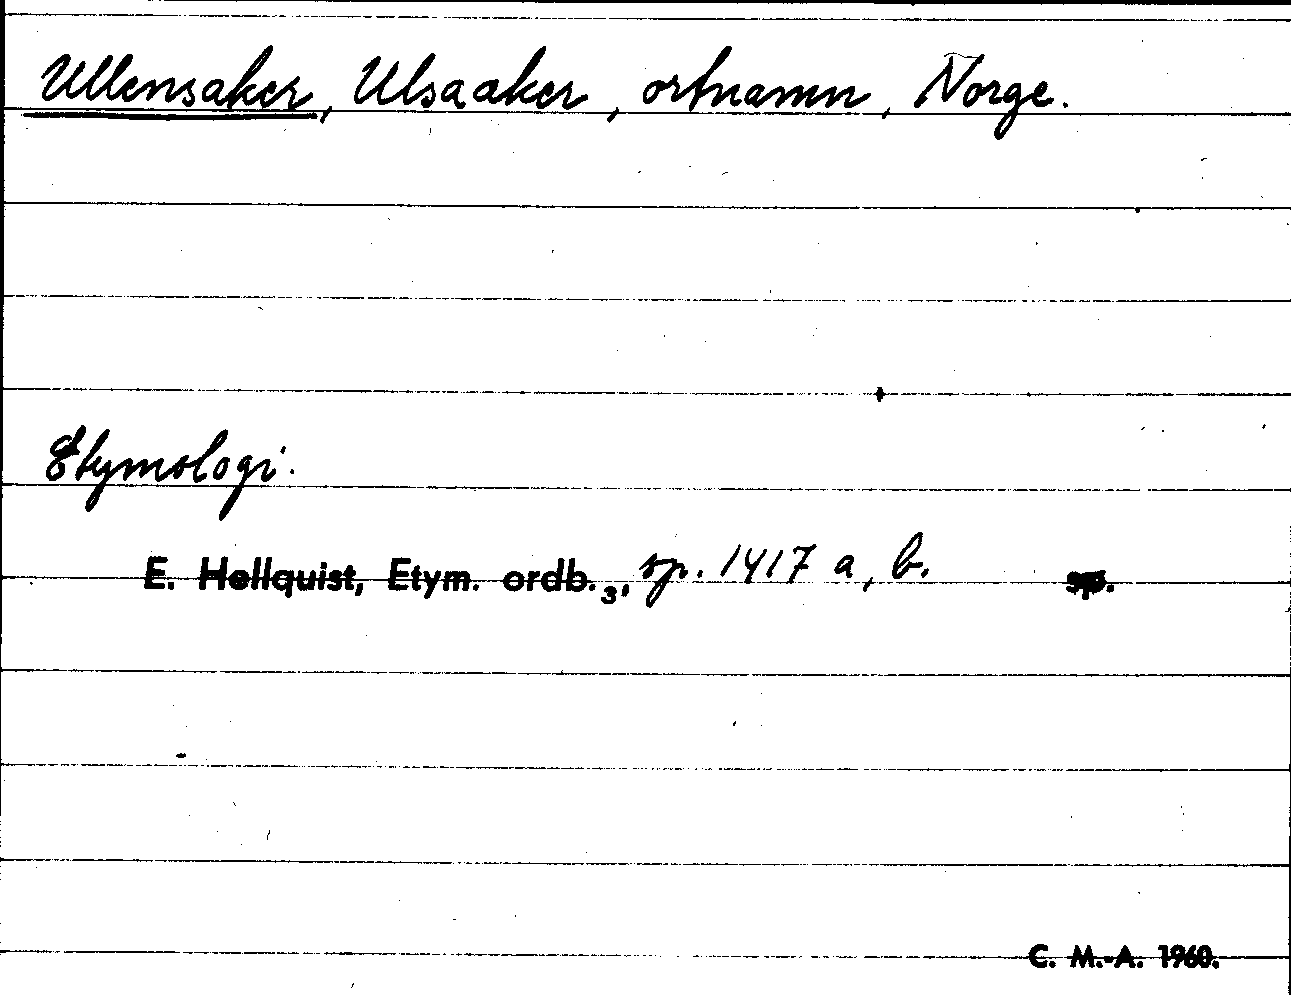 Ullensaker, Ulsaaker, ortnamn, Norge.
Etymologi.
E. Hellquist, Etym. ordb. 3, sp. 1417 a, b. sp.
C. M.-A. 1960.